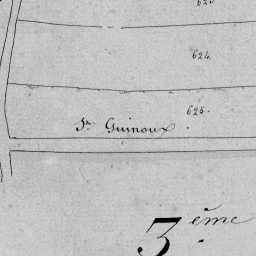 623
624.
625.
St. Guinoux
3.ème